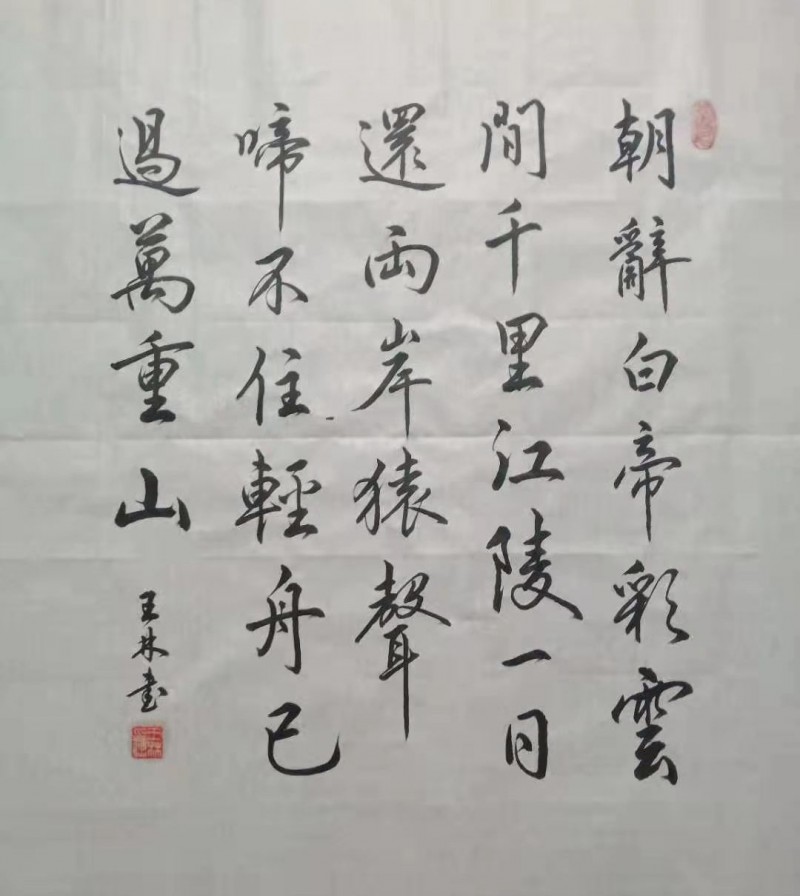 朝辭白帝彩雲
間千里江陵一日
還兩岸猿聲
啼不住輕舟已
過萬重山
王林书